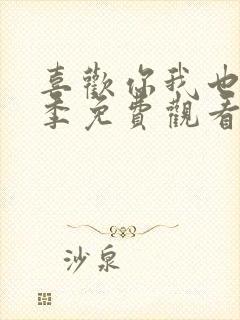 喜歡你我也
季免費觀看
沙泉